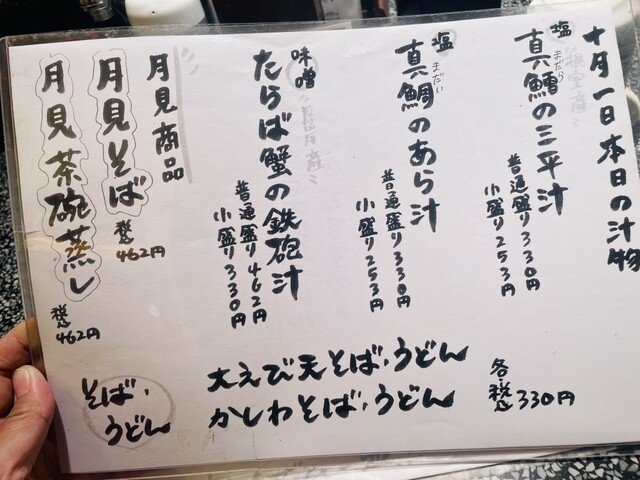 十月一日本日の汁物
塩
真鱈の三平汁
まだら
普通盛り330円
小盛り253円
塩
真鯛のあら汁
まだい
普通盛り330円
小盛り253円
味噌
たらば蟹の鉄砲汁
普通盛り462円
小盛り330円
月見商品
月見そば
税込462円
月見茶碗蒸し
税込462円
そば・
うどん
大えび天そば・うどん
かしわそば・うどん
各税込330円